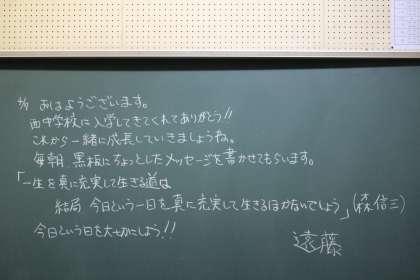 4/9 おはようございます。
西中学校に入学してきてくれてありがとう!!
これから一緒に成長していきましょうね。
毎朝 黒板にちょっとしたメッセージを書かせてもらいます。
「一生を真に充実して生きる道は
結局 今日という一日を真に充実して生きるほかないでしょう」(森信三)
今日という日を大切にしよう!!
遠藤